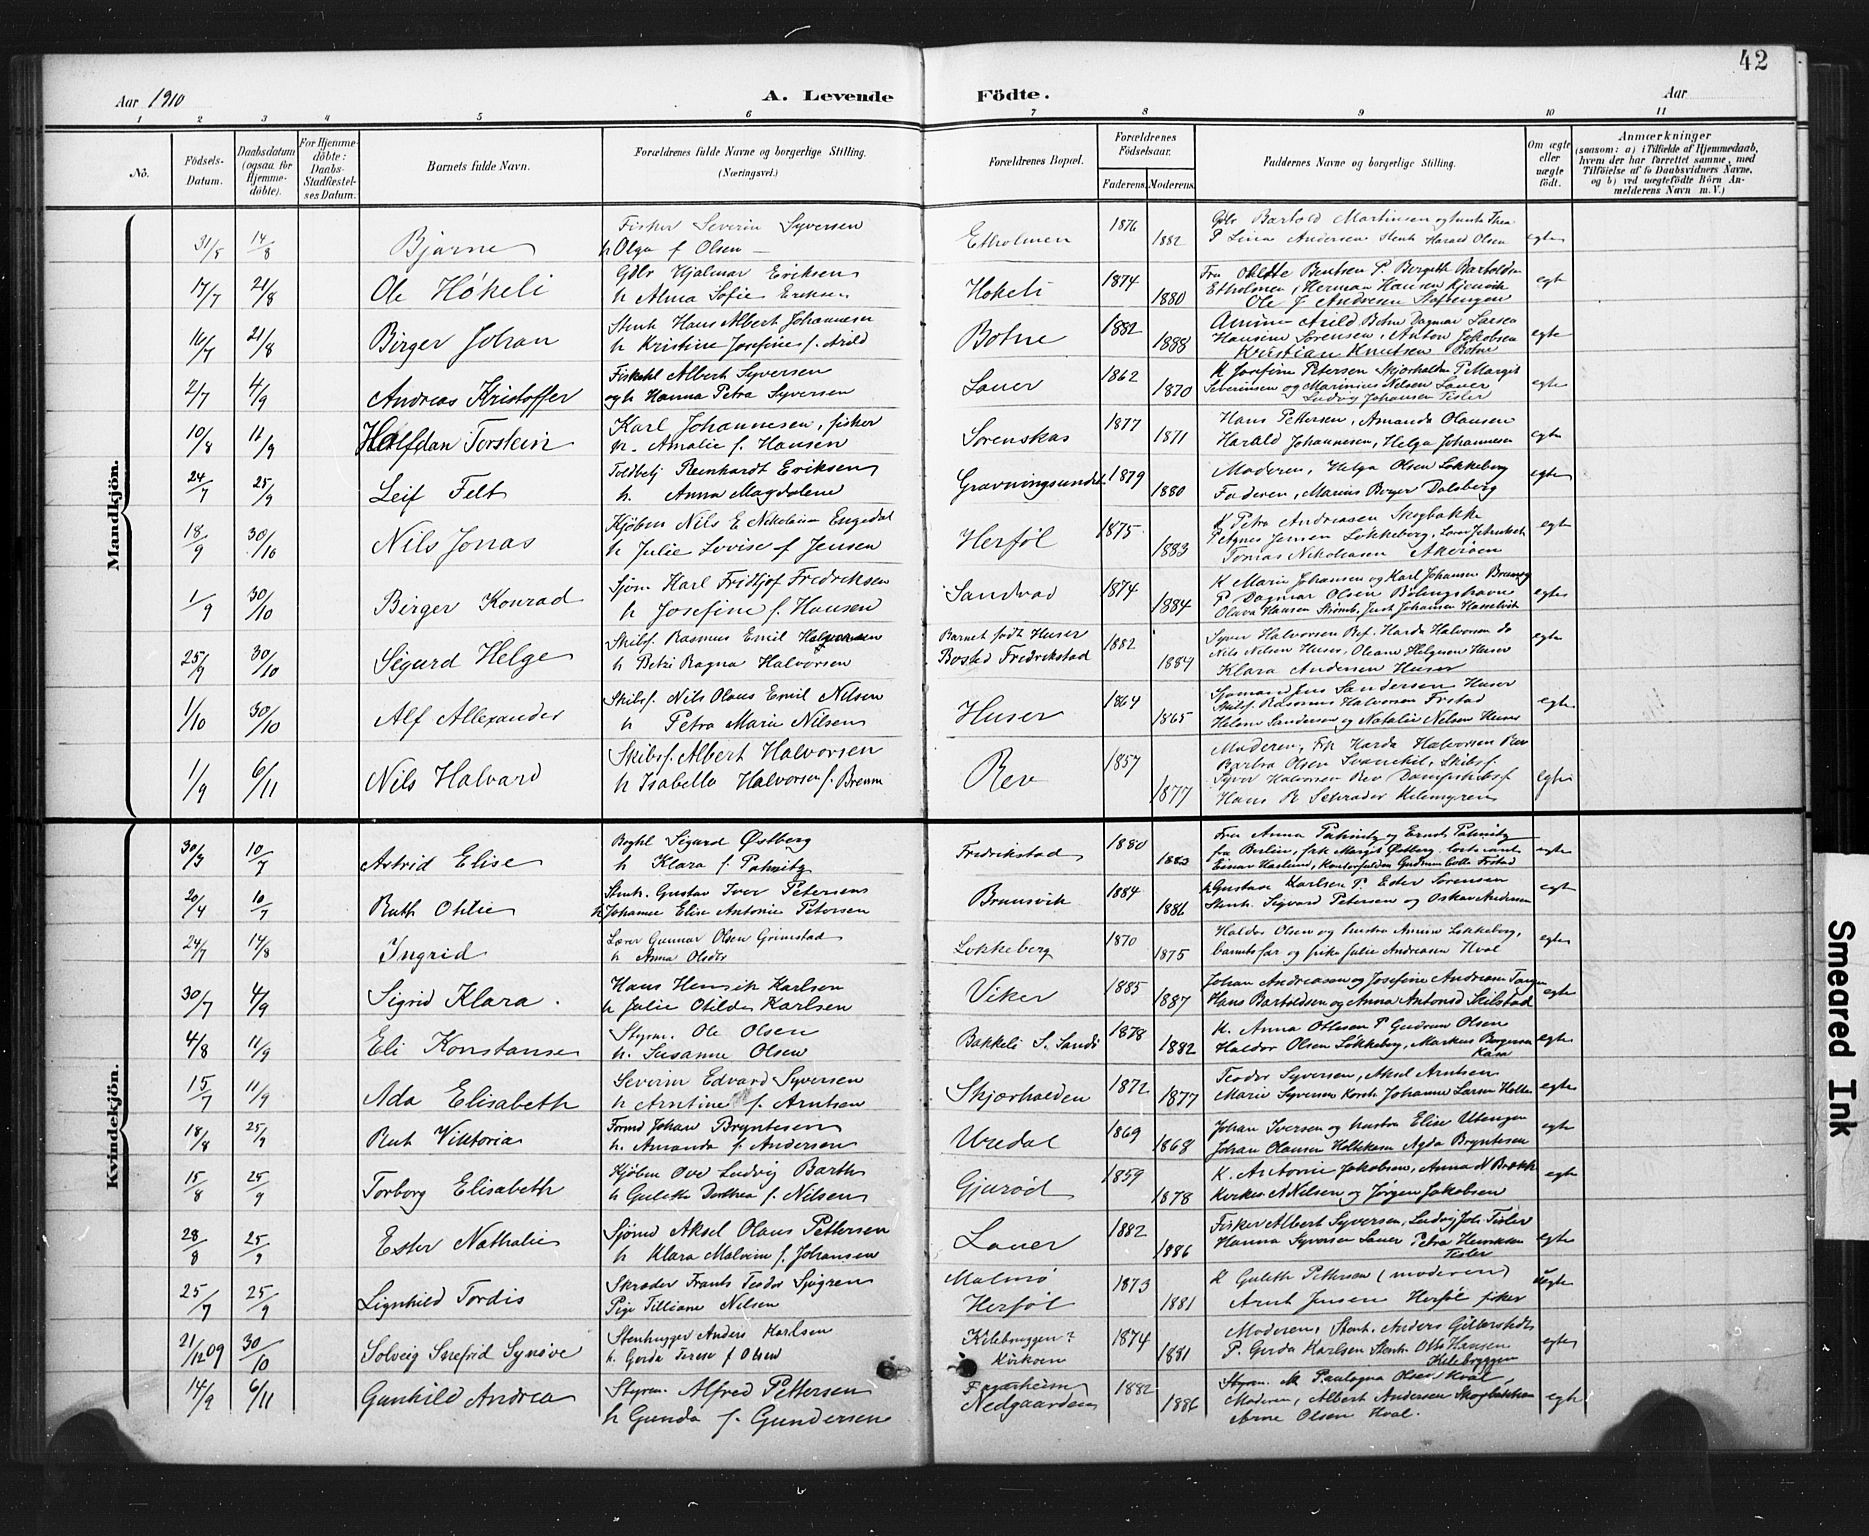 42
Aar 1910
A. Levende Födte.
Aar
1 2 3 4 5 6 7 8 9 10 11
No.
Födsels-Datum.
Daabsdatum (ogsaa for Hjemmedöbte).
For Hjemmedöbte: Daabs-Stadfæstelses Datum.
Barnets fulde Navn.
Forældrenes fulde Navne og borgerlige Stilling. (Næringsvei.)
Forældrenes Bopæl.
Forældrenes Födselsaar.
Faderens. Moderens.
Faddernes Navne og borgerlige Stilling.
Om ægte eller uægte födt.
Anmærkninger
(saasom: a) i Tilfælde af Hjemmedaab, hvem der har forrettet samme, med Tilföielse af to Daabsvidners Navne, og b) ved uægtefödte Börn Anmelderens Navn m. V.)
Mandkjön.
31/5 14/8 Bjarne
Fisker Severin Syversen
h Olga f Olsen
Etholmen 1876 1882
P Lina Andersen Stenh Harald Olsen egte
17/7 21/8 Ole Høkeli
Gdbr Hjalmar Eriksen
h Alma Sofie Eriksen
Høkeli 1874 1880
Etholmen, Herman Hansen
Ole J Andresen egte
16/7 21/8 Birger Johan
Stenh Hans Albert Johannesen
h Kristine Josefine f. Arild
Botne 1882 1888
Arild Botne Dagmar Larsen
Hansine Sorensen, Anton Jakobsen
Kristian Knutsen Botne egte
2/7 4/9 Andreas Kristoffer
Albert Syversen
og h Hanna Petra Syversen
Lauer 1862 1870
K Josefine Petersen Skjærhalden P Margit
Severinsen og Marinius Nelsen Lauer
Ludvig Johansen Tisler egte
10/8 11/9 Halfdan Torstein
Karl Johannesen, fisker
h. Amalie f. Hansen
Sørenskas 1877 1871
Hans Pettersen, Amanda Olausen
Harald Johannesen, Helga Johannesen egte
24/7 25/9 Leif Felt
Toldbetj Reinhardt Eriksen
h. Anna Magdalene
Gravningsundet 1879 1880
Moderen, Helga Olsen Løkkeberg
Faderen, Marius Dalsberg egte
18/9 30/10 Nils Jonas
Kjøbm Nils E Nikolaisen Engedal
h Julie Lovise f Jensen
Herføl 1875 1883
K Petra Andreasen Skogbakke
P Agnes Jensen Løkkeberg,
Tomas Nikolaisen Akerøen egte
1/9 30/10 Birger Konrad
Sjøm Karl Fridtjof Fredriksen
h Josefine f. Hansen
Sandvad 1874 1884
K Marie Johansen og Karl Johansen
P Dagmar Olsen Bølingshavn
Olava Hansen egte
25/9 30/10 Sigurd Helge
Skibsf. Rasmus Emil Halvorsen
h Betzi Ragna Halvorsen
Barnet født Huser
Bosted Fredrikstad 1882 1884
Syver Halvorsen Rev. Harda Halvorsen do
Nils Nilsen Huser, Oleane Helgesen Huser
Klara Andersen Huser egte
1/10 30/10 Alf Allexander
Skibsf. Nils Olaus Emil Nilsen
h Petra Marie Nilsen
Huser 1864 1865
Sjømand Jens Sandersen Huser
Skibsf. Rasmus Halvorsen Frstad
Helene Sandersen og Natalie Nelsen Huser egte
11/9 6/11 Nils Halvard
Skibsf. Albert Halvorsen
h Isabella Halvorsen f. Brenn
Rev 1857 1877
Moderen, Frk Harda Halvorsen Rev
Barbra Olsen Svanekil, Skibsf.
Syver Halvorsen Rev Dampskibsf
Hans R Schrøder egte
Kvindekjön.
30/3 10/7 Astrid Elise
Boghl Sigurd Østberg
h Klara f. Patnitz
Fredrikstad 1880 1883
Fru Anna Patnitz og Ernst Patnitz
fra Berlin, frk Margit Østberg
Einar Haslund, Gudrun Frstad egte
20/4 10/7 Ruth Otilie
Stenh. Gustav Iver Petersen
h Johanne Elise Antonie Petersen
Brunsvik 1884 1886
K Gustava Karlsen P. Ester Sorensen
Stenh. Sigvard Petersen og Oskar Andersen egte
24/7 14/8 Ingrid
Lærer Gunnar Olsen Grimstad
h Anna Olsdtr
Løkkeberg 1870 1875
Haldor Olsen og hustru Løkkeberg,
barnets far og frk Julie Andreasen Hval egte
30/7 4/9 Sigrid Klara
Hans Henrik Karlsen
h Julie Otilde Karlsen
Viker 1885 1887
Johan Andreasen og Josefine Andreasen
Hans Bartoldsen og Anna Antonsd Kilstad egte
4/8 11/9 Eli Konstanse
Styrm. Ole Olsen
h. Susanne Olsen
Bakkeli S. Sandø 1878 1882
K. Anna Ottesen P Gudrun Olsen
Haldor Olsen Løkkeberg, Markus Borgersen egte
15/7 11/9 Ada Elisabeth
Severin Edvard Syversen
h Arntine f. Arntsen
Skjærhalden 1872 1877
Teodor Syversen, Aksel Arntsen
Marie Syversen Johanne Larsen egte
18/8 25/9 Rut Viktoria
Formd Johan Bryntesen
h. Amanda f. Andersen
Uredal 1869 1868
Johan Iversen og hustru Elise Utengen
Johan Olausen Holtekasen Agda Bryntesen egte
15/8 25/9 Torborg Elisabeth
Kjøbm Ove Ludvig Barth
h Guletta Dorthea f. Nilsen
Gjurød 1859 1878
K. Antonie Jakobsen, Anna N Brekke
N Nilsen og Jørgen Jakobsen egte
28/8 25/9 Ester Nathalie
Sjømd Aksel Olaus Pettersen
h Klara Malvine f. Johansen
Lauer 1882 1886
Fisker Albert Syversen, Ludvig Joh. Tisler
Hanna Syversen Lauer Petra Henriksen
Tisler egte
25/7 25/9 Lignhild Tordis
Skræder Frants Teodor Sjøgren
Pige Tilliane Nelsen
Malmø
Herføl 1873 1881
K Guletta Pettersen (moderen)
Arnt Jensen Herføl fisker uegte
21/12 09 30/10 Solveig Snefrid Synøve
Stenhugger Anders Karlsen
h. Gerda Terese f Olsen
Kilebryggen?
Kirkøen 1874 1881
Moderen, Stenh. Anders
P. Gerda Karlsen Stenh Otto Hansen
Kilebryggen egte
14/9 6/11 Gunhild Andrea
Styrm. Alfred Pettersen
h Gunda f. Gundersen
Fagerheim
Nedgaarden 1882 1886
Styrm. M Paulagna Olsen Hval,
Moderen, Albert Andersen Skogbakken
Arne Olsen Hval. egte
Smeared Ink